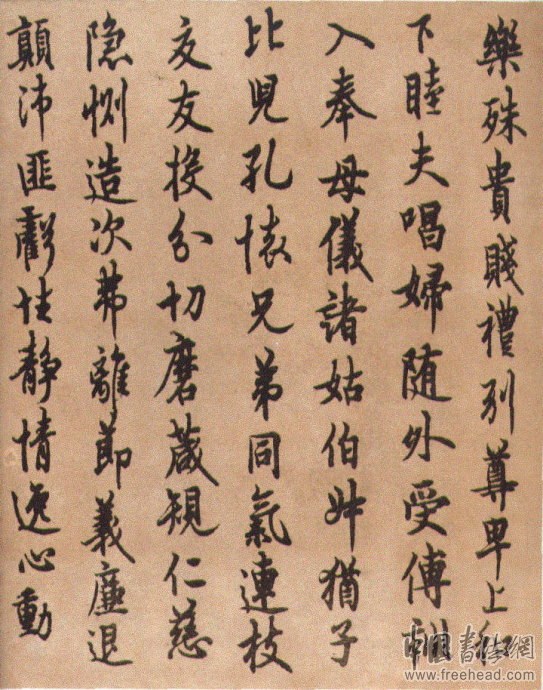 樂殊貴賤禮別尊卑上和
下睦夫唱婦随外受傅訓
入奉母儀諸姑伯叔猶子
比兒孔懷兄弟同氣連枝
交友投分切磨箴規仁慈
隐惻造次弗離節義廉退
顛沛匪虧性靜情逸心動
中国書法網
www.freehead.com